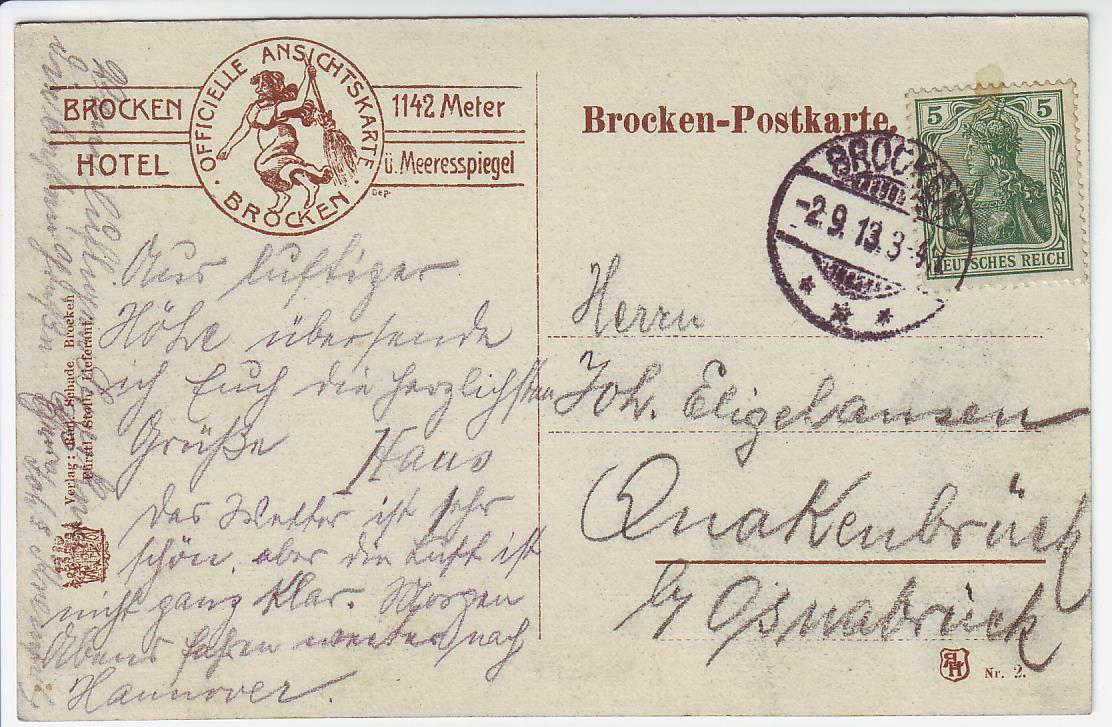 OFFICIELLE ANSICHTSKARTE
BROCKEN
BROCKEN
HOTEL
1142 Meter
ü. Meeresspiegel
Dep.
Brocken-Postkarte.
5 5
DEUTSCHES REICH
BROCKEN
-2.9.13.3-4
* * *
Aus luftiger
Höhe übersende
ich Euch die herzlichsten
Grüße Hans
Das Wetter ist sehr
schön, aber die Luft ist
nicht ganz klar. Morgen
Abend fahren weiter nach
Hannover.
Herrn
Joh. Eligehausen
Quakenbrück
b/ Osnabrück
Verlag: Rud. Schade, Brocken
Fürstl. Stolb. Lieferant.
RH
Nr. 2.